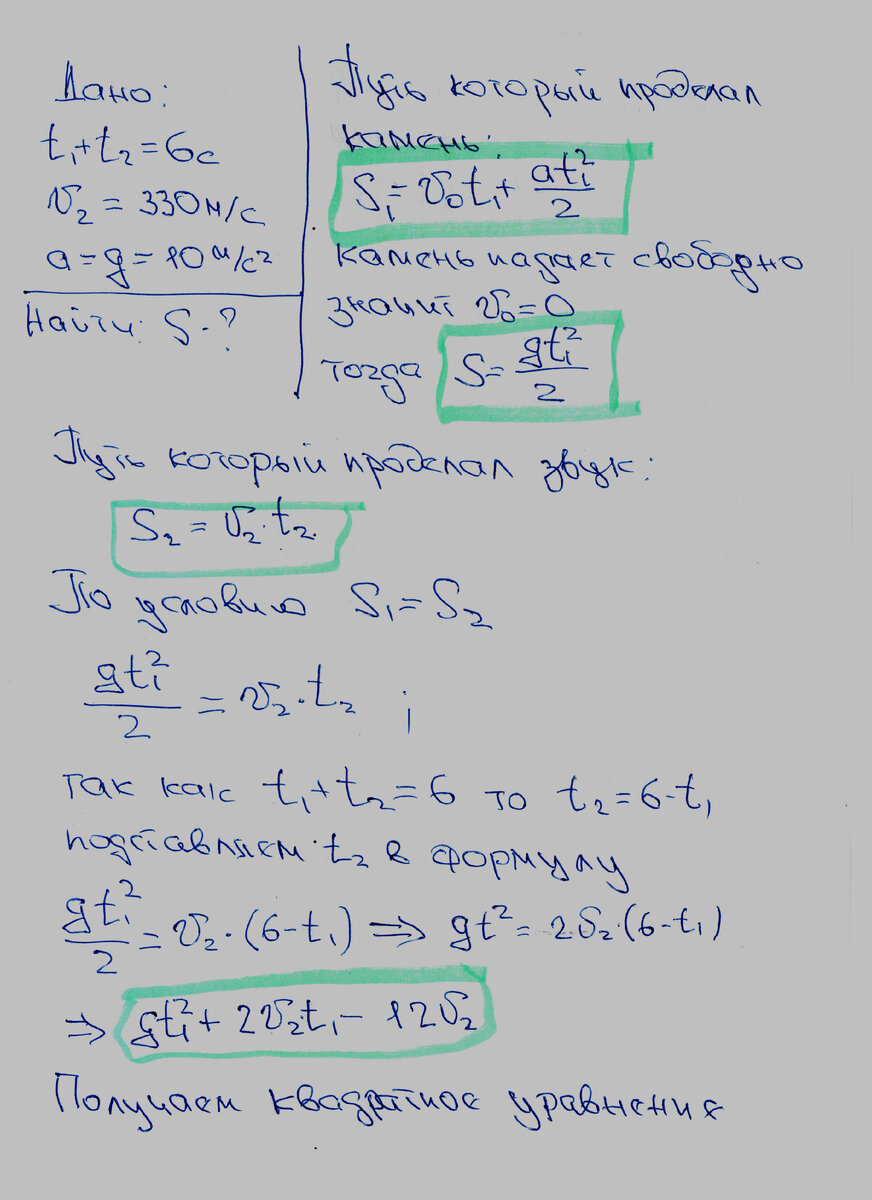 Дано:
t₁+t₂=6с
υ₂ = 330м/с
a=g=10м/с²
Найти: S-?
Путь который проделал
камень:
S₁=υ₀t₁+ at₁²/2
камень падает свободно
значит υ₀=0
тогда S= gt₁²/2
Путь который проделал звук:
S₂ = υ₂·t₂.
По условию S₁=S₂
gt₁²/2 = υ₂·t₂ ;
так как t₁+t₂=6 то t₂=6-t₁
подставляем t₂ в формулу
gt₁²/2 = υ₂·(6-t₁) ⇒ gt²=2υ₂·(6-t₁)
⇒ gt₁²+2υ₂t₁-12υ₂
Получаем квадратное уравнение